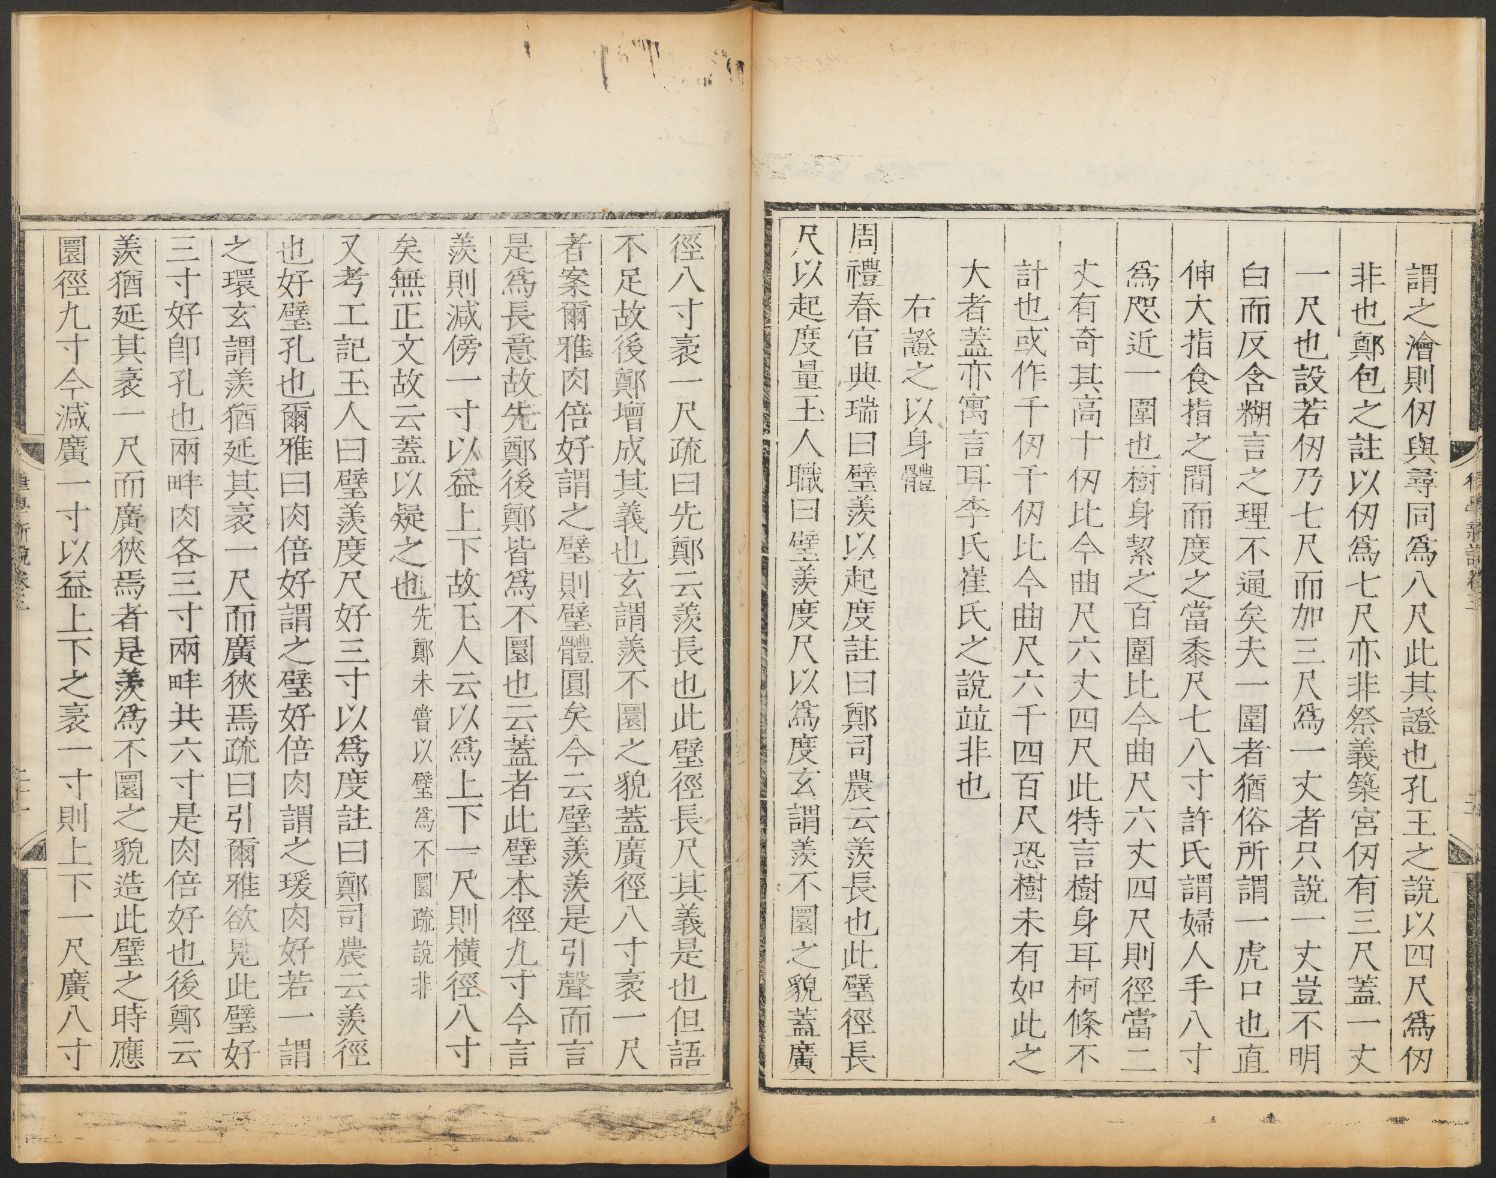 謂之澮則仞與尋同爲八尺此其證也孔王之說以四尺爲仞
非也鄭包之註以仞爲七尺亦非祭義築宮仞有三尺蓋一丈
一尺也設若仞乃七尺而加三尺爲一丈者只說一丈豈不明
白而反含糊言之理不通矣夫一圍者猶俗所謂一虎口也直
伸大指食指之間而度之當黍尺七八寸許氏謂婦人手八寸
爲咫近一圍也樹身絜之百圍比今曲尺六丈四尺則徑當二
丈有奇其高十仞比今曲尺六丈四尺此特言樹身耳柯條不
計也或作千仞千仞比今曲尺六千四百尺恐樹未有如此之
大者蓋亦寓言耳李氏崔氏之說竝非也
右證之以身體
周禮春官典瑞曰璧羨以起度註曰鄭司農云羨長也此璧徑長
尺以起度量玉人職曰璧羨度尺以爲度玄謂羨不圜之貌蓋廣
徑八寸袤一尺疏曰先鄭云羨長也此璧徑長尺其義是也但語
不足故後鄭增成其義也玄謂羨不圜之貌蓋廣徑八寸袤一尺
者案爾雅肉倍好謂之璧則璧體圓矣今云璧羨羨是引聲而言
是爲長意故先鄭後鄭皆爲不圜也云蓋者此璧本徑九寸今言
羨則減傍一寸以益上下故玉人云以爲上下一尺則橫徑八寸
矣無正文故云蓋以疑之也先鄭未嘗以璧爲不圜疏說非
又考工記玉人曰璧羨度尺好三寸以爲度註曰鄭司農云羨徑
也好璧孔也爾雅曰肉倍好謂之璧好倍肉謂之瑗肉好若一謂
之環玄謂羨猶延其袤一尺而廣狹焉疏曰引爾雅欲見此璧好
三寸好卽孔也兩畔肉各三寸兩畔共六寸是肉倍好也後鄭云
羨猶延其袤一尺而廣狹焉者是羨爲不圜之貌造此璧之時應
圜徑九寸今減廣一寸以益上下之袤一寸則上下一尺廣八寸